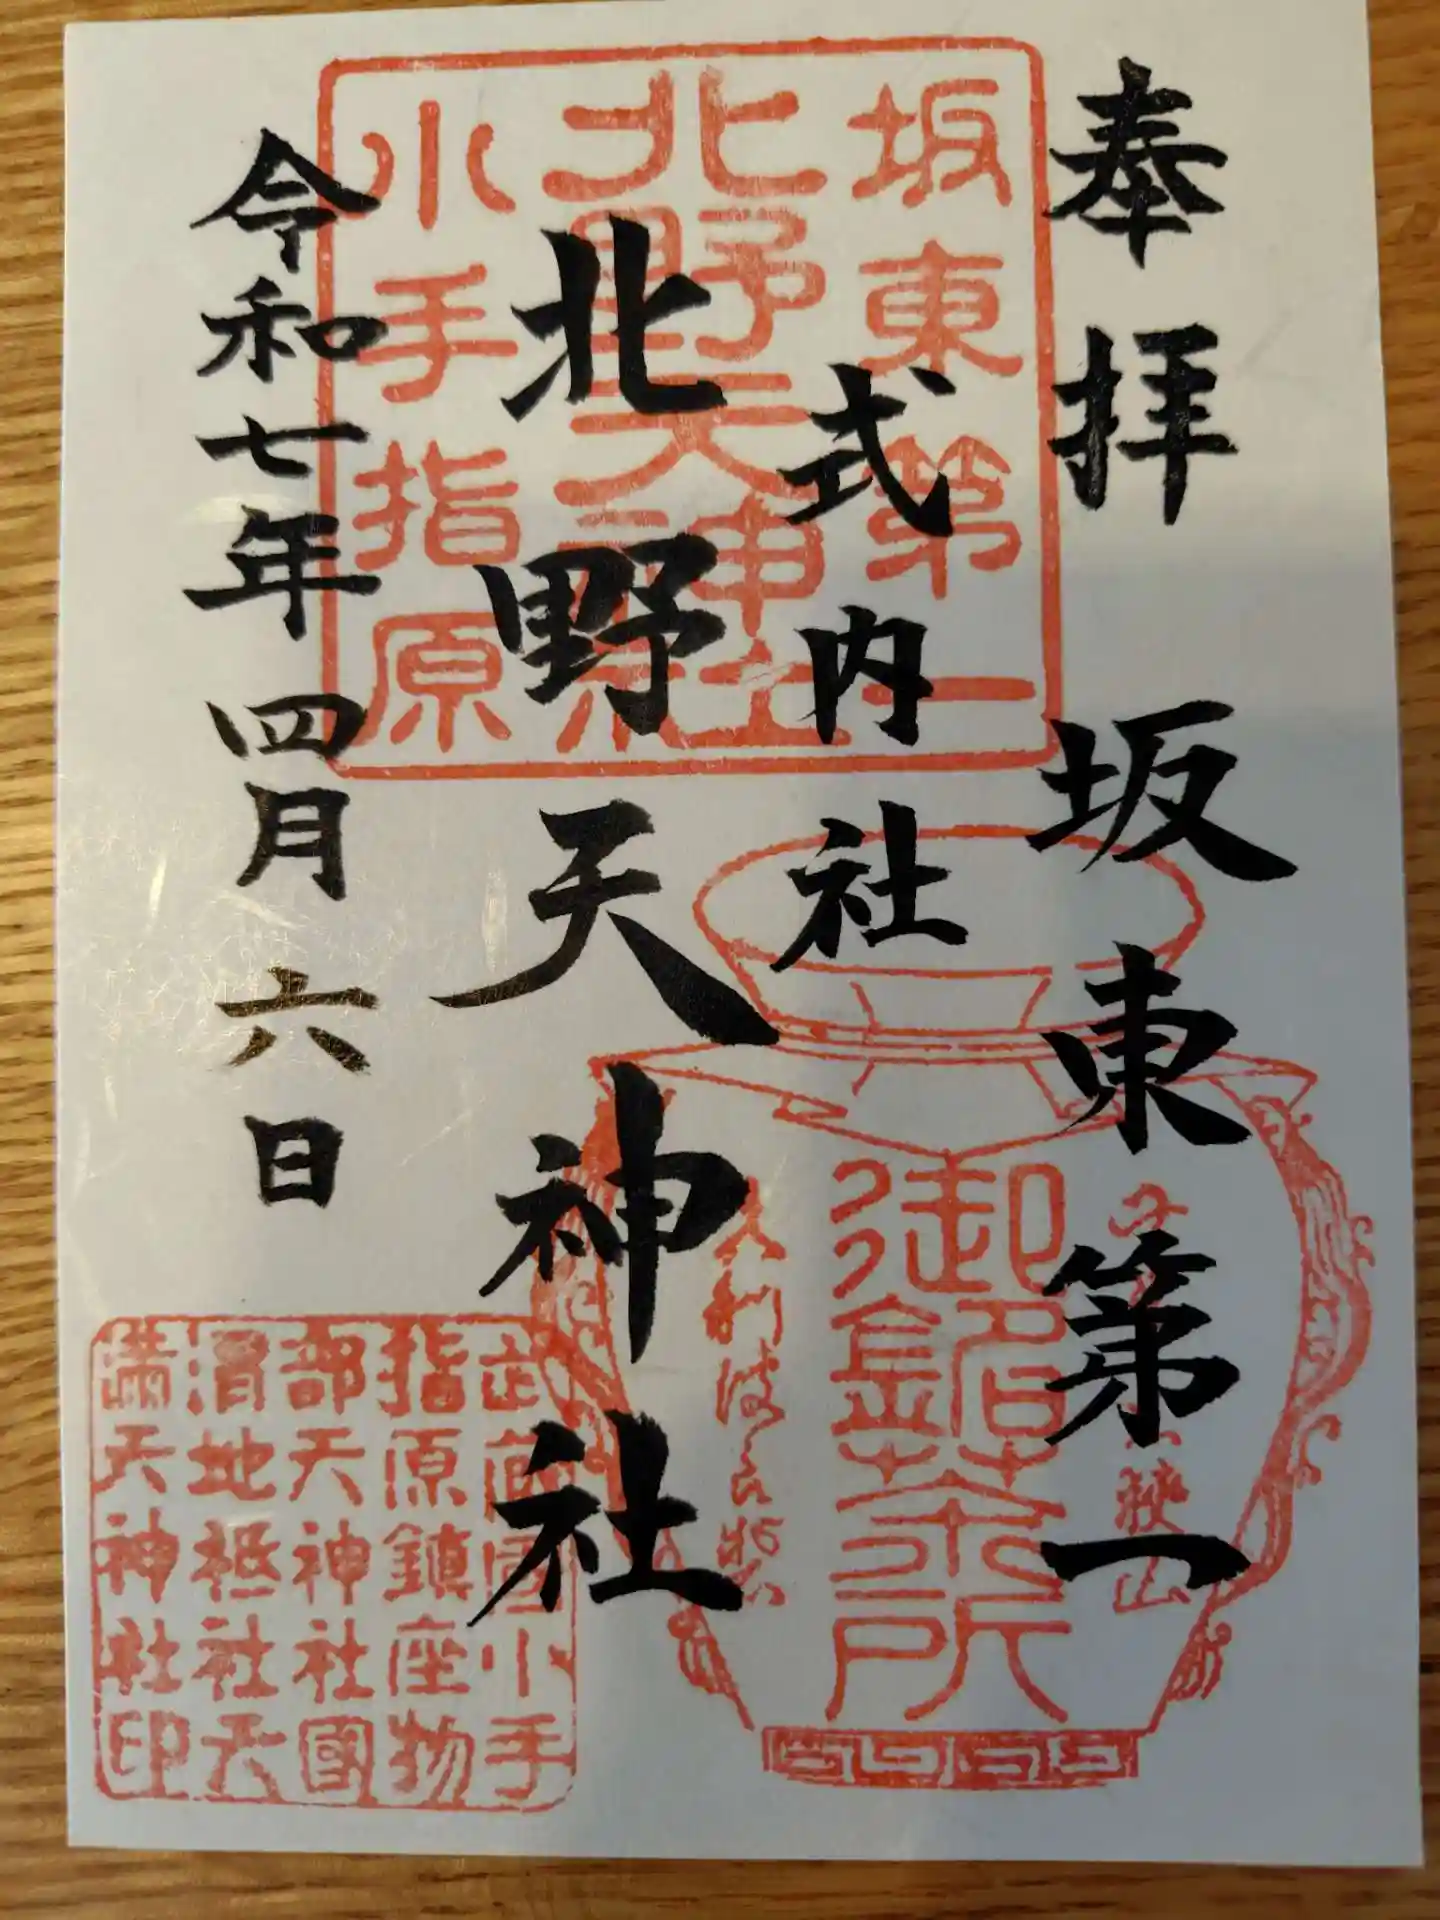 奉拝 坂東第一
式内社
北野天神社
令和七年四月六日
坂東第一
北野天神社
小手指原
御詔茶所
狭山
武蔵国小手
指原鎮座物
部天神社國
渭地祇社天
満天神社印